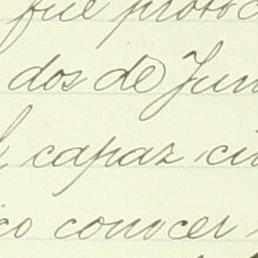 fué protoc
dos de Jun
l capaz ciu
co conocer